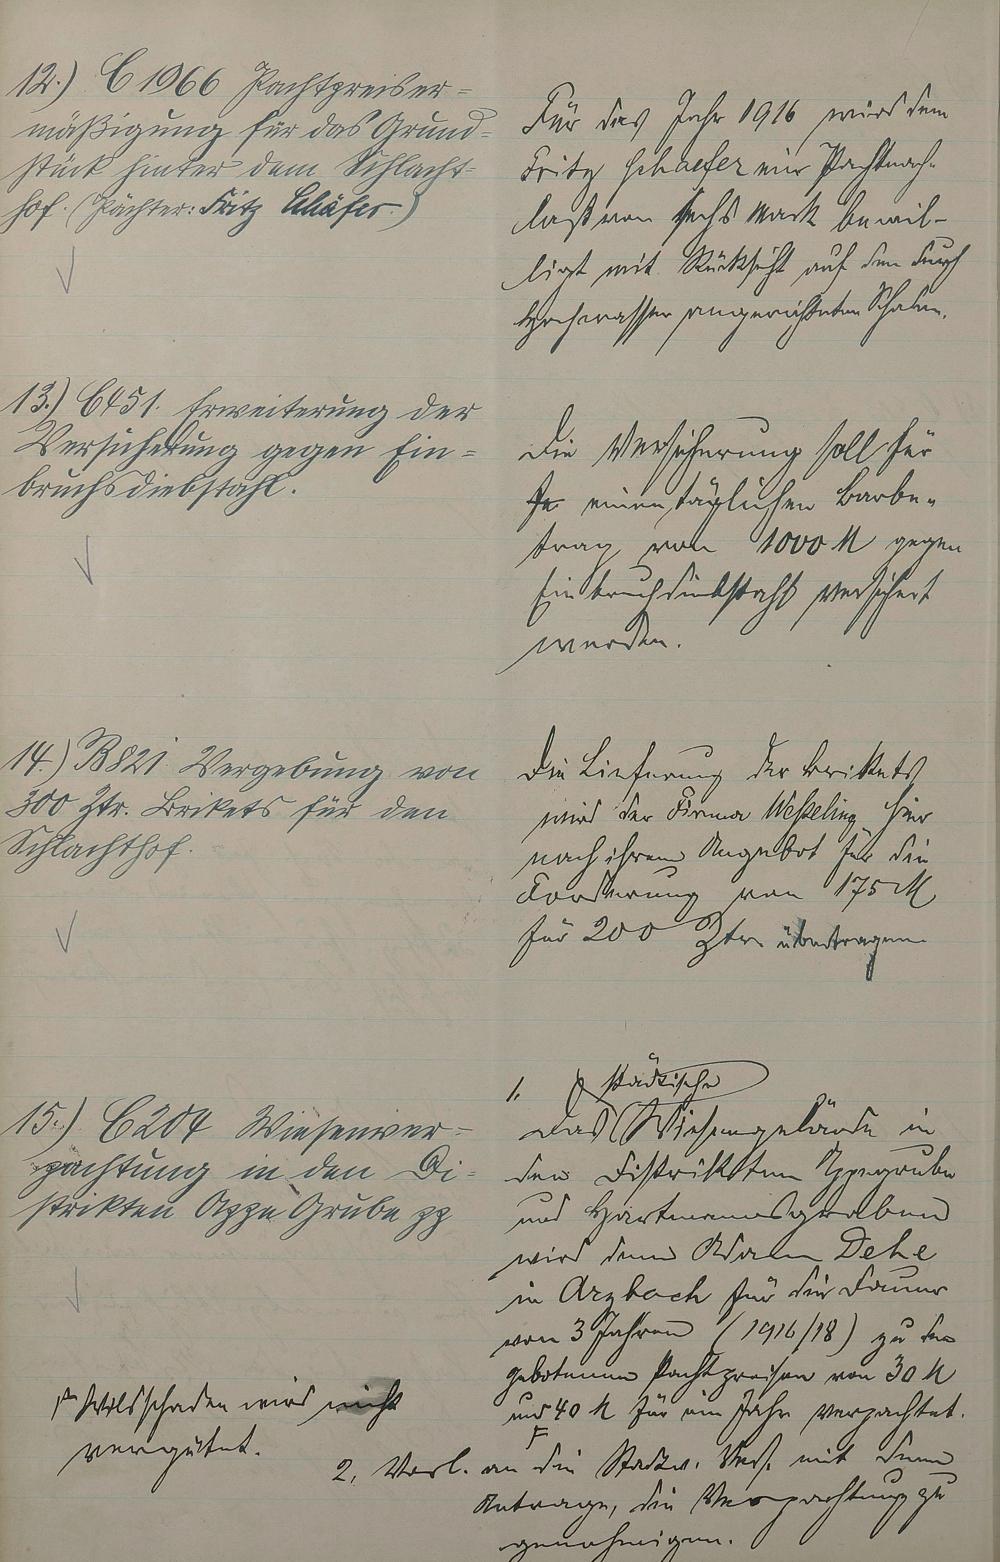 12.) C 1966 Pachtpreiser=
mäßigung für das Grund=
stück hinter dem Schlacht=
hof. (Pächter: Fritz Schäfer.)
Für das Jahr 1916 wird dem
Fritz Schaefer ein Pachtnach-
laß von sechs Mark bewil-
ligt mit Rücksicht auf den durch
Hochwasser angerichteten Schaden.
13.) C451. Erweiterung der
Versicherung gegen Ein=
bruchsdiebstahl.
Die Versicherung soll für
einen täglichen Barbe-
trag von 1000 M gegen
Einbruchdiebstahl versichert
werden.
14.) B821 Vergebung von
300 Ztr. Brikets für den
Schlachthof.
Die Lieferung der Brikets
wird der Firma Wesseling hier
nach ihrem Angebot für die
Forderung von 175 M
für 200 Ztr. übertragen
15.) C204 Wiesenver=
pachtung in den Di=
strikten Appe Grube pp
1. städtische
Das Wiesengelände in
den Distrikten Appegrube
und Hartmannsgraben
wird dem Adam Dehe
in Arzbach für die Dauer
von 3 Jahren (1916/18) zu den
gebotenen Pachtpreisen von 30 M
und 40 M für ein Jahr verpachtet.
F
F Wildschaden wird nicht
vergütet.
2. Vorl. an die Stadtv. Vers. mit dem
Antrage, die Verpachtung zu
genehmigen.